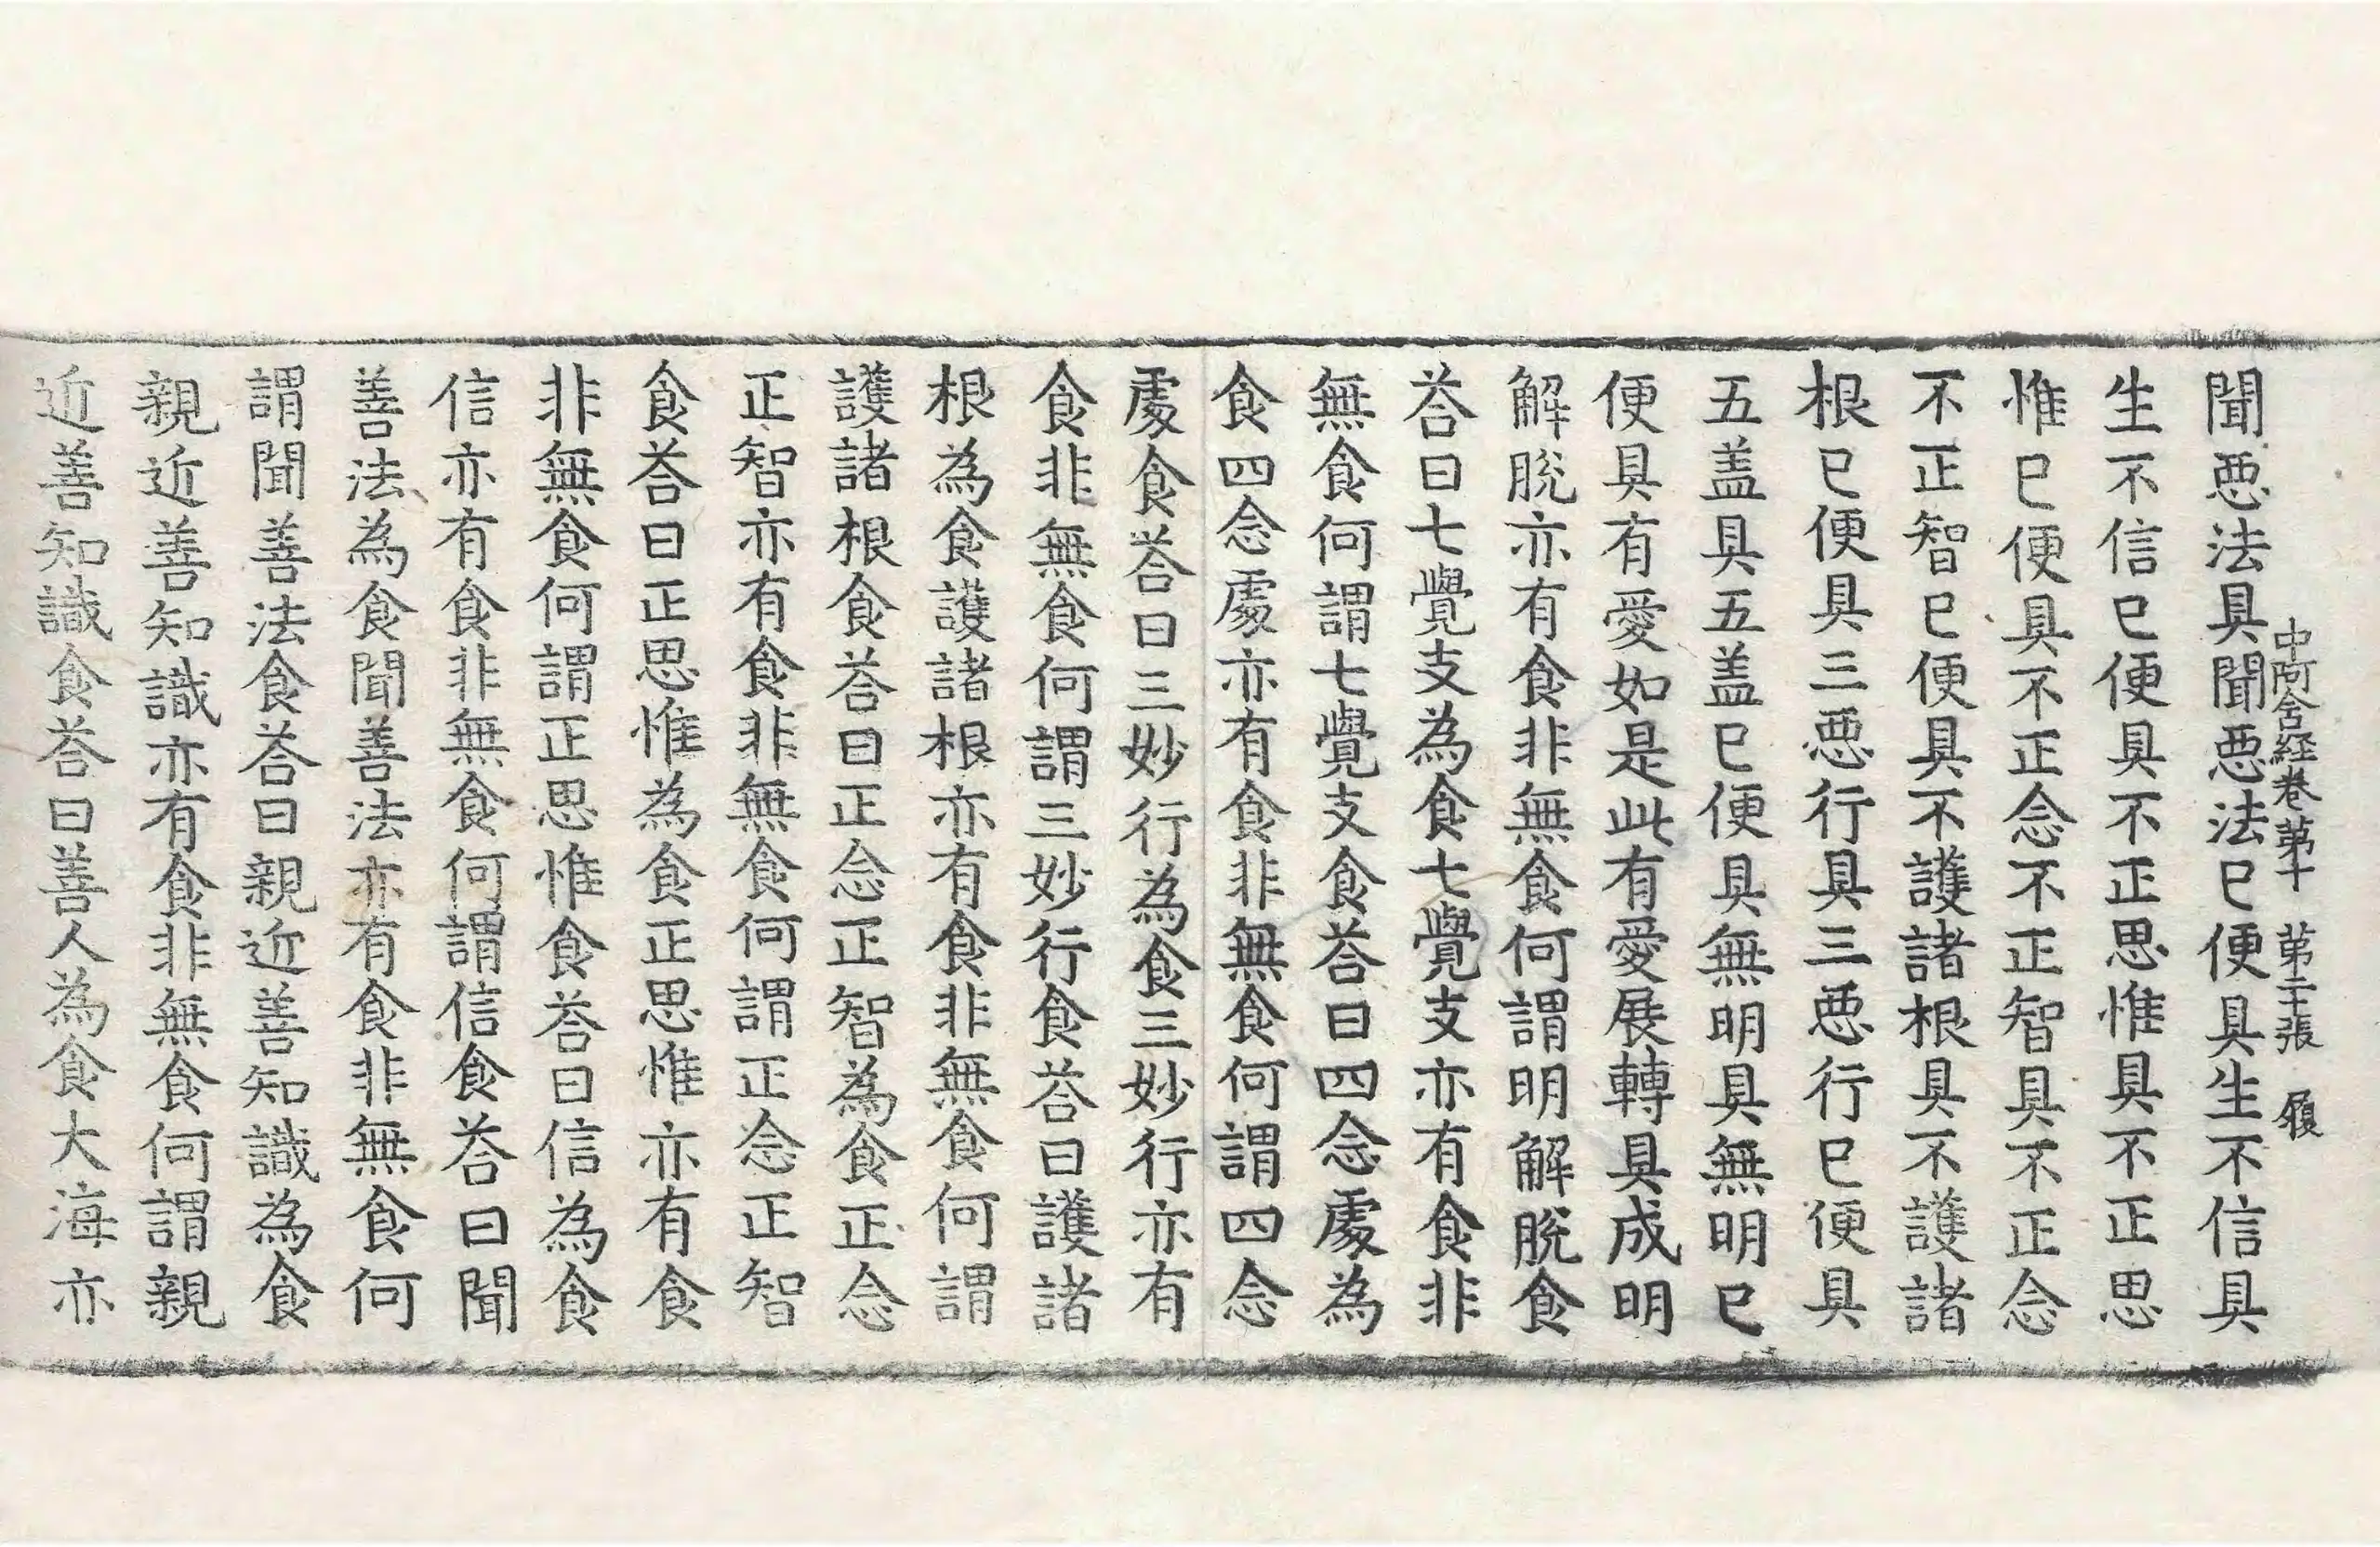 中阿含経卷苐十　苐二十張　履
聞悪法具聞悪法已便具生不信具
生不信已便具不正思惟具不正思
惟已便具不正念不正智具不正念
不正智已便具不護諸根具不護諸
根已便具三悪行具三悪行已便具
五盖具五盖已便具無明具無明已
便具有愛如是此有愛展轉具成明
解脫亦有食非無食何謂明解脫食
荅曰七覺支為食七覺支亦有食非
無食何謂七覺支食荅曰四念處為
食四念處亦有食非無食何謂四念
處食荅曰三妙行為食三妙行亦有
食非無食何謂三妙行食荅曰護諸
根為食護諸根亦有食非無食何謂
護諸根食荅曰正念正智為食正念
正智亦有食非無食何謂正念正智
食荅曰正思惟為食正思惟亦有食
非無食何謂正思惟食荅曰信為食
信亦有食非無食何謂信食荅曰聞
善法為食聞善法亦有食非無食何
謂聞善法食荅曰親近善知識為食
親近善知識亦有食非無食何謂親
近善知識食荅曰善人為食大海亦